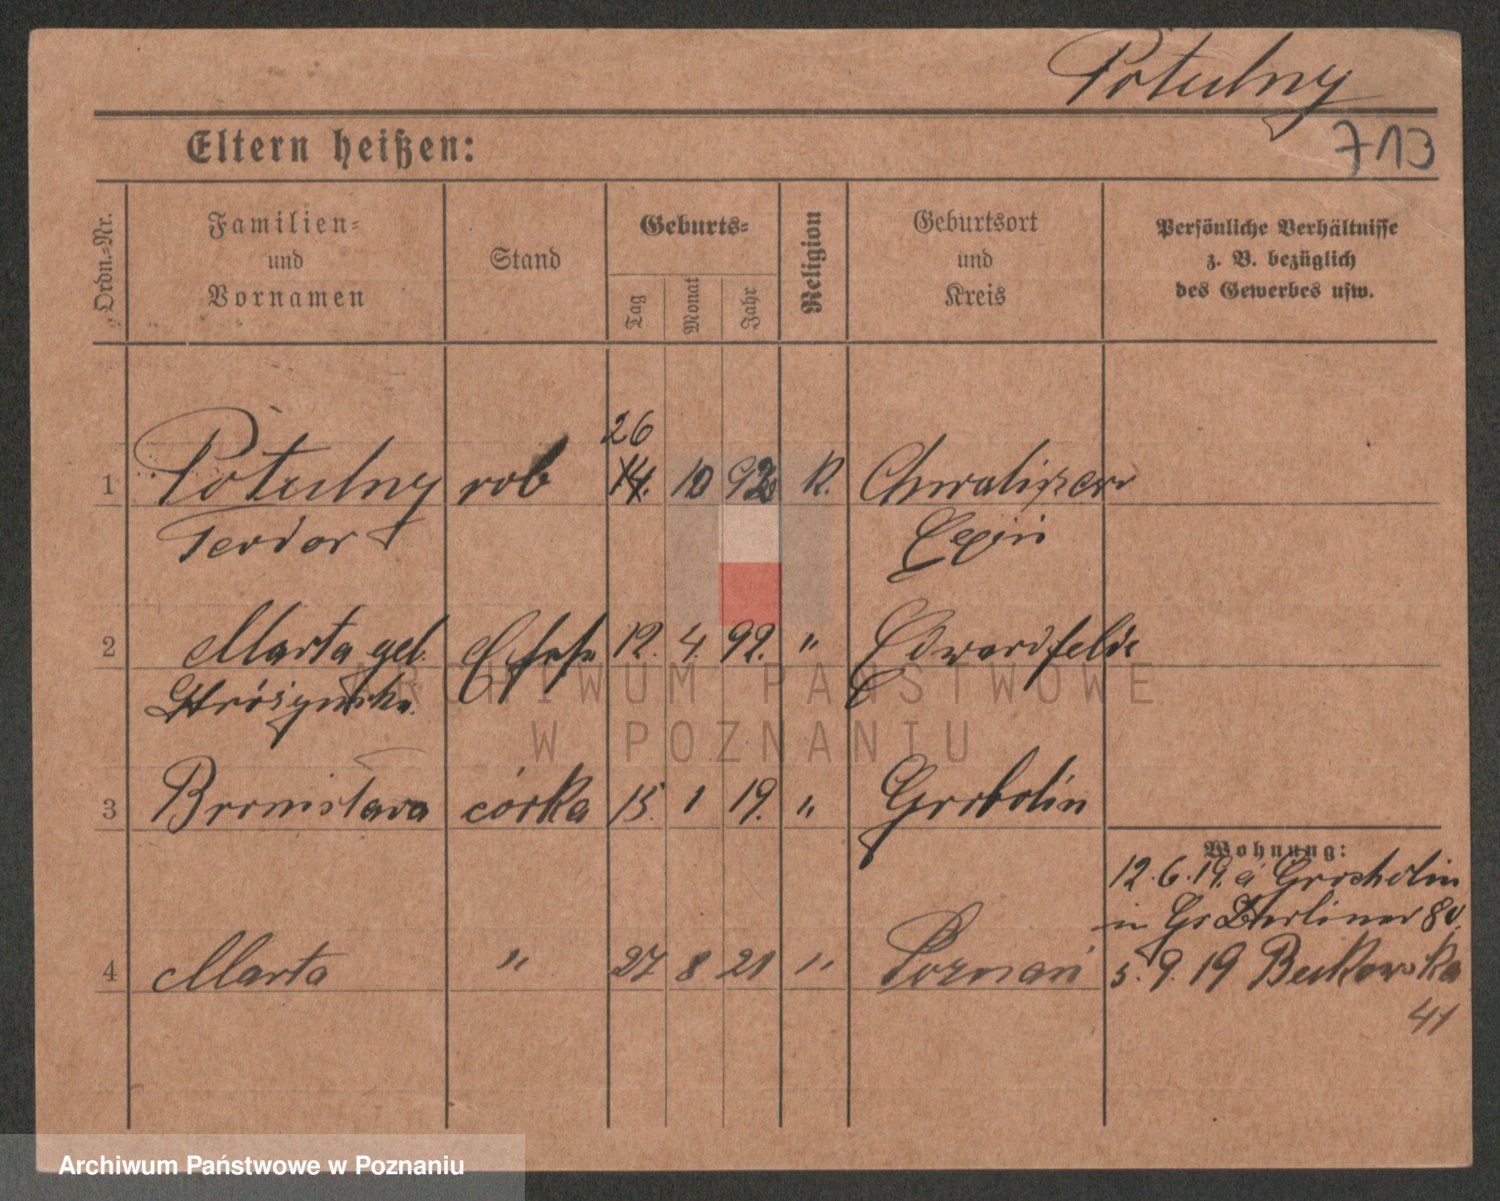 Potulny
713
Eltern heißen:
Ordn.-Nr.
Familien-
und
Vornamen
Stand
Geburts-
Tag
Monat
Jahr
Religion
Geburtsort
und
Kreis
Persönliche Verhältnisse
z. B. bezüglich
des Gewerbes usw.
26
1 Potulny rob 14. 10 92 K. Chwaliszewo
Teodor Exin
2 Marta geb. Efr 12. 4. 92. " Edwardsfelde
3 Bronislava córka 15. 1 19. "
Wohnung:
12.6.19. a Grocholin
in Gr Berliner 80
4 Marta " 27 8 21 " Poznań 5.9.19 Bukowska
41
ARCHIWUM PAŃSTWOWE
W POZNANIU
Archiwum Państwowe w Poznaniu